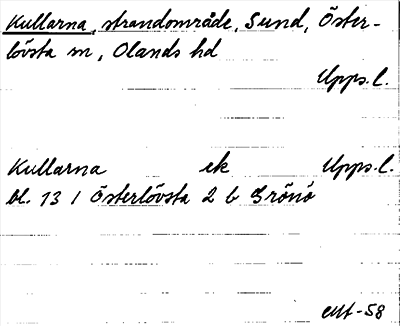 Kullarna, strandområde, Sund, Öster-
lövsta sn, Olands hd
Upps.l.
Kullarna ek Upps.l.
bl. 13 I Österlövsta 2 b Grönö
-58